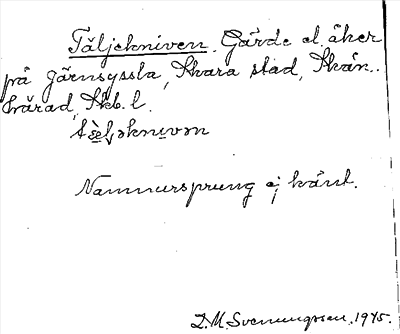 Täljekniven. Gärde el. åker
på Järnsyssla, Skara stad, Skån..
härad, Skb. l.
Namnursprung ej känt.
D.M. Svenungsson. 1945.